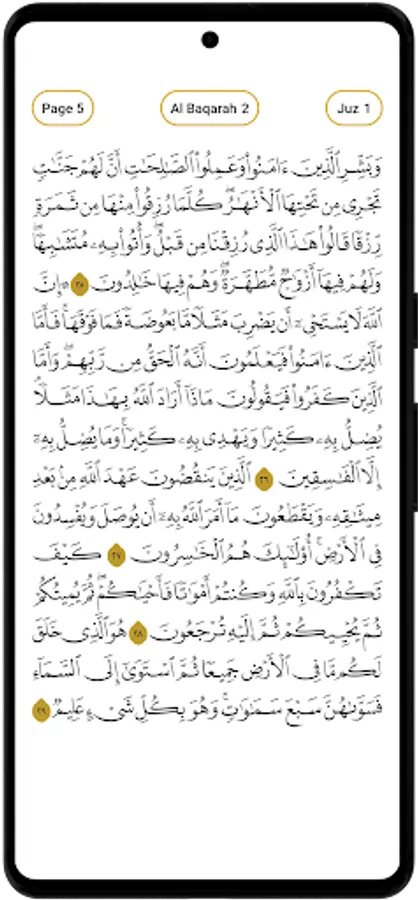 Page 5
Al Baqarah 2
Juz 1
وَبَشِّرِ الَّذِينَ ءَامَنُوا وَعَمِلُوا الصَّالِحَاتِ أَنَّ لَهُمْ جَنَّاتٍ
تَجْرِي مِن تَحْتِهَا الْأَنْهَارُ ۖ كُلَّمَا رُزِقُوا مِنْهَا مِن ثَمَرَةٍ
رِّزْقًا قَالُوا هَٰذَا الَّذِي رُزِقْنَا مِن قَبْلُ ۖ وَأُتُوا بِهِ مُتَشَابِهًا ۖ
وَلَهُمْ فِيهَا أَزْوَاجٌ مُّطَهَّرَةٌ ۖ وَهُمْ فِيهَا خَالِدُونَ ٢٥ ۞ إِنَّ
اللَّهَ لَا يَسْتَحْيِۦٓ أَن يَضْرِبَ مَثَلًا مَّا بَعُوضَةً فَمَا فَوْقَهَا ۚ فَأَمَّا
الَّذِينَ ءَامَنُوا فَيَعْلَمُونَ أَنَّهُ الْحَقُّ مِن رَّبِّهِمْ ۖ وَأَمَّا
الَّذِينَ كَفَرُوا فَيَقُولُونَ مَاذَا أَرَادَ اللَّهُ بِهَٰذَا مَثَلًا ۘ
يُضِلُّ بِهِ كَثِيرًا وَيَهْدِي بِهِ كَثِيرًا ۚ وَمَا يُضِلُّ بِهِ
إِلَّا الْفَاسِقِينَ ٢٦ الَّذِينَ يَنقُضُونَ عَهْدَ اللَّهِ مِن بَعْدِ
مِيثَاقِهِ وَيَقْطَعُونَ مَا أَمَرَ اللَّهُ بِهِ أَن يُوصَلَ وَيُفْسِدُونَ
فِي الْأَرْضِ ۚ أُولَٰئِكَ هُمُ الْخَاسِرُونَ ٢٧ كَيْفَ
تَكْفُرُونَ بِاللَّهِ وَكُنتُمْ أَمْوَاتًا فَأَحْيَاكُمْ ۖ ثُمَّ يُمِيتُكُمْ
ثُمَّ يُحْيِيكُمْ ثُمَّ إِلَيْهِ تُرْجَعُونَ ٢٨ هُوَ الَّذِي خَلَقَ
لَكُم مَّا فِي الْأَرْضِ جَمِيعًا ثُمَّ اسْتَوَىٰ إِلَى السَّمَاءِ
فَسَوَّاهُنَّ سَبْعَ سَمَاوَاتٍ ۚ وَهُوَ بِكُلِّ شَيْءٍ عَلِيمٌ ٢٩